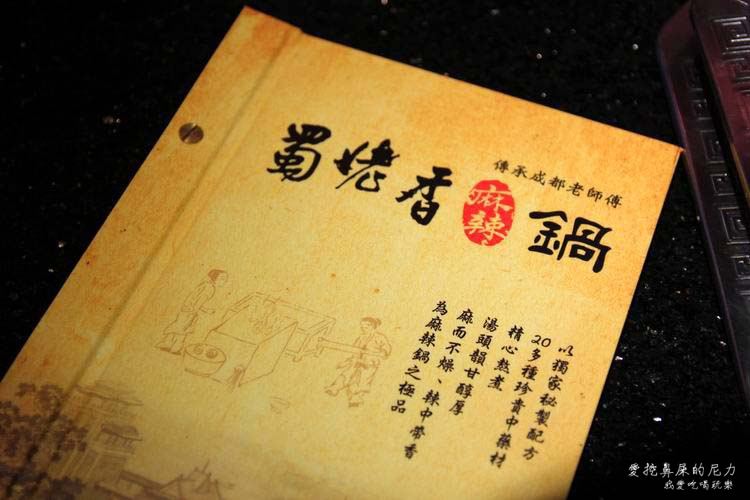 蜀姥香麻辣鍋
傳承成都老師傅
以獨家秘製配方
20多種珍貴中藥材
精心熬煮
湯頭韻甘醇厚
麻而不燥、辣中帶香
為麻辣鍋之極品
愛挖鼻屎的尼力
我愛吃喝玩樂